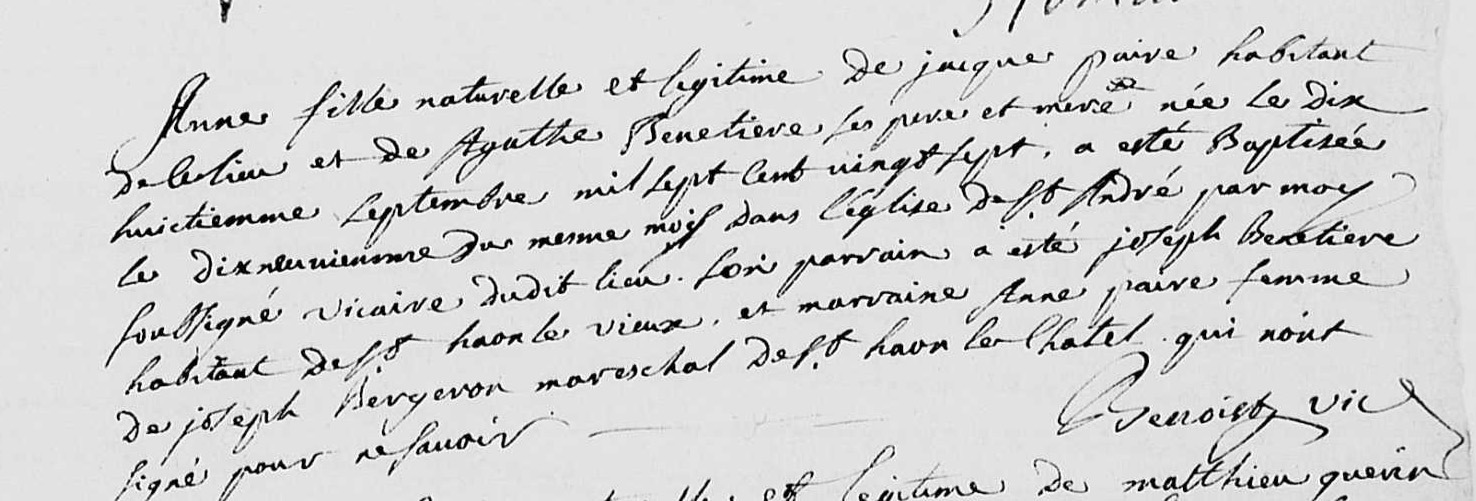 Anne fille naturelle et legitime de jacque paire habitant
de ce lieu et de Agathe Benetiere ses pere et mere née le dix
huictiemme septembre mil sept cent vingt sept, a esté Baptisée
le dixneuviemme du mesme mois dans l'église de St André par moy
soussigné vicaire dudit lieu. son parrain a esté joseph Benetiere
habitant de St haon le vieux, et marraine Anne paire femme
de joseph Bergeron mareschal de St haon le Chatel qui n'ont
signé pour ne savoir
Benoist vic
et legitime de matthieu querin